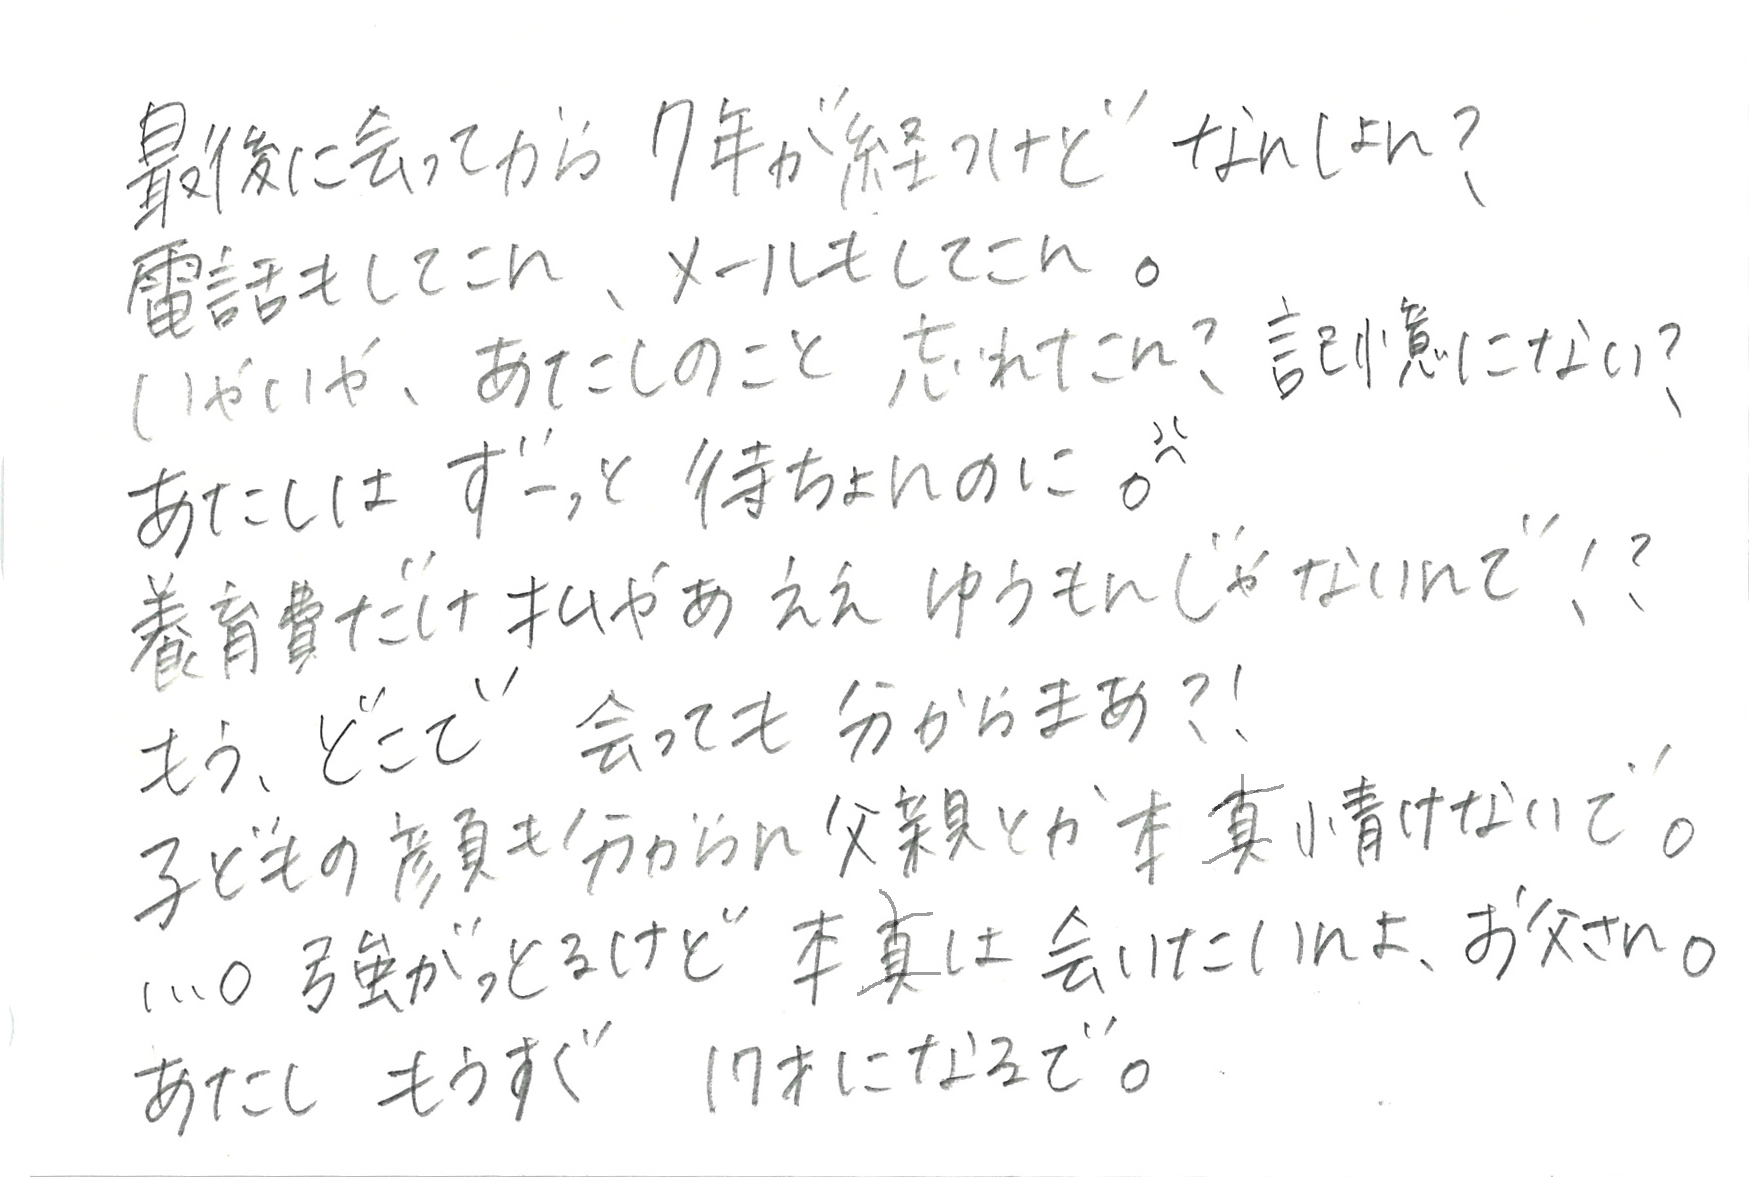 最後に会ってから 7年が経つけど なんしよん?
電話もしてこん、メールもしてこん。
いやいや、あたしのこと 忘れたこん? 記憶にない?
あたしは ずーっと 待ちよんのに。
養育費だけ払やあ ええ ゆうもんじゃないんで!?
もう、どこで 会っても 分からまあ?!
子どもの顔も分からん父親とか本真情けないで。
…。強がっとるけど 本真は 会いたいんよ、お父さん。
あたし もうすぐ 17才になるで。